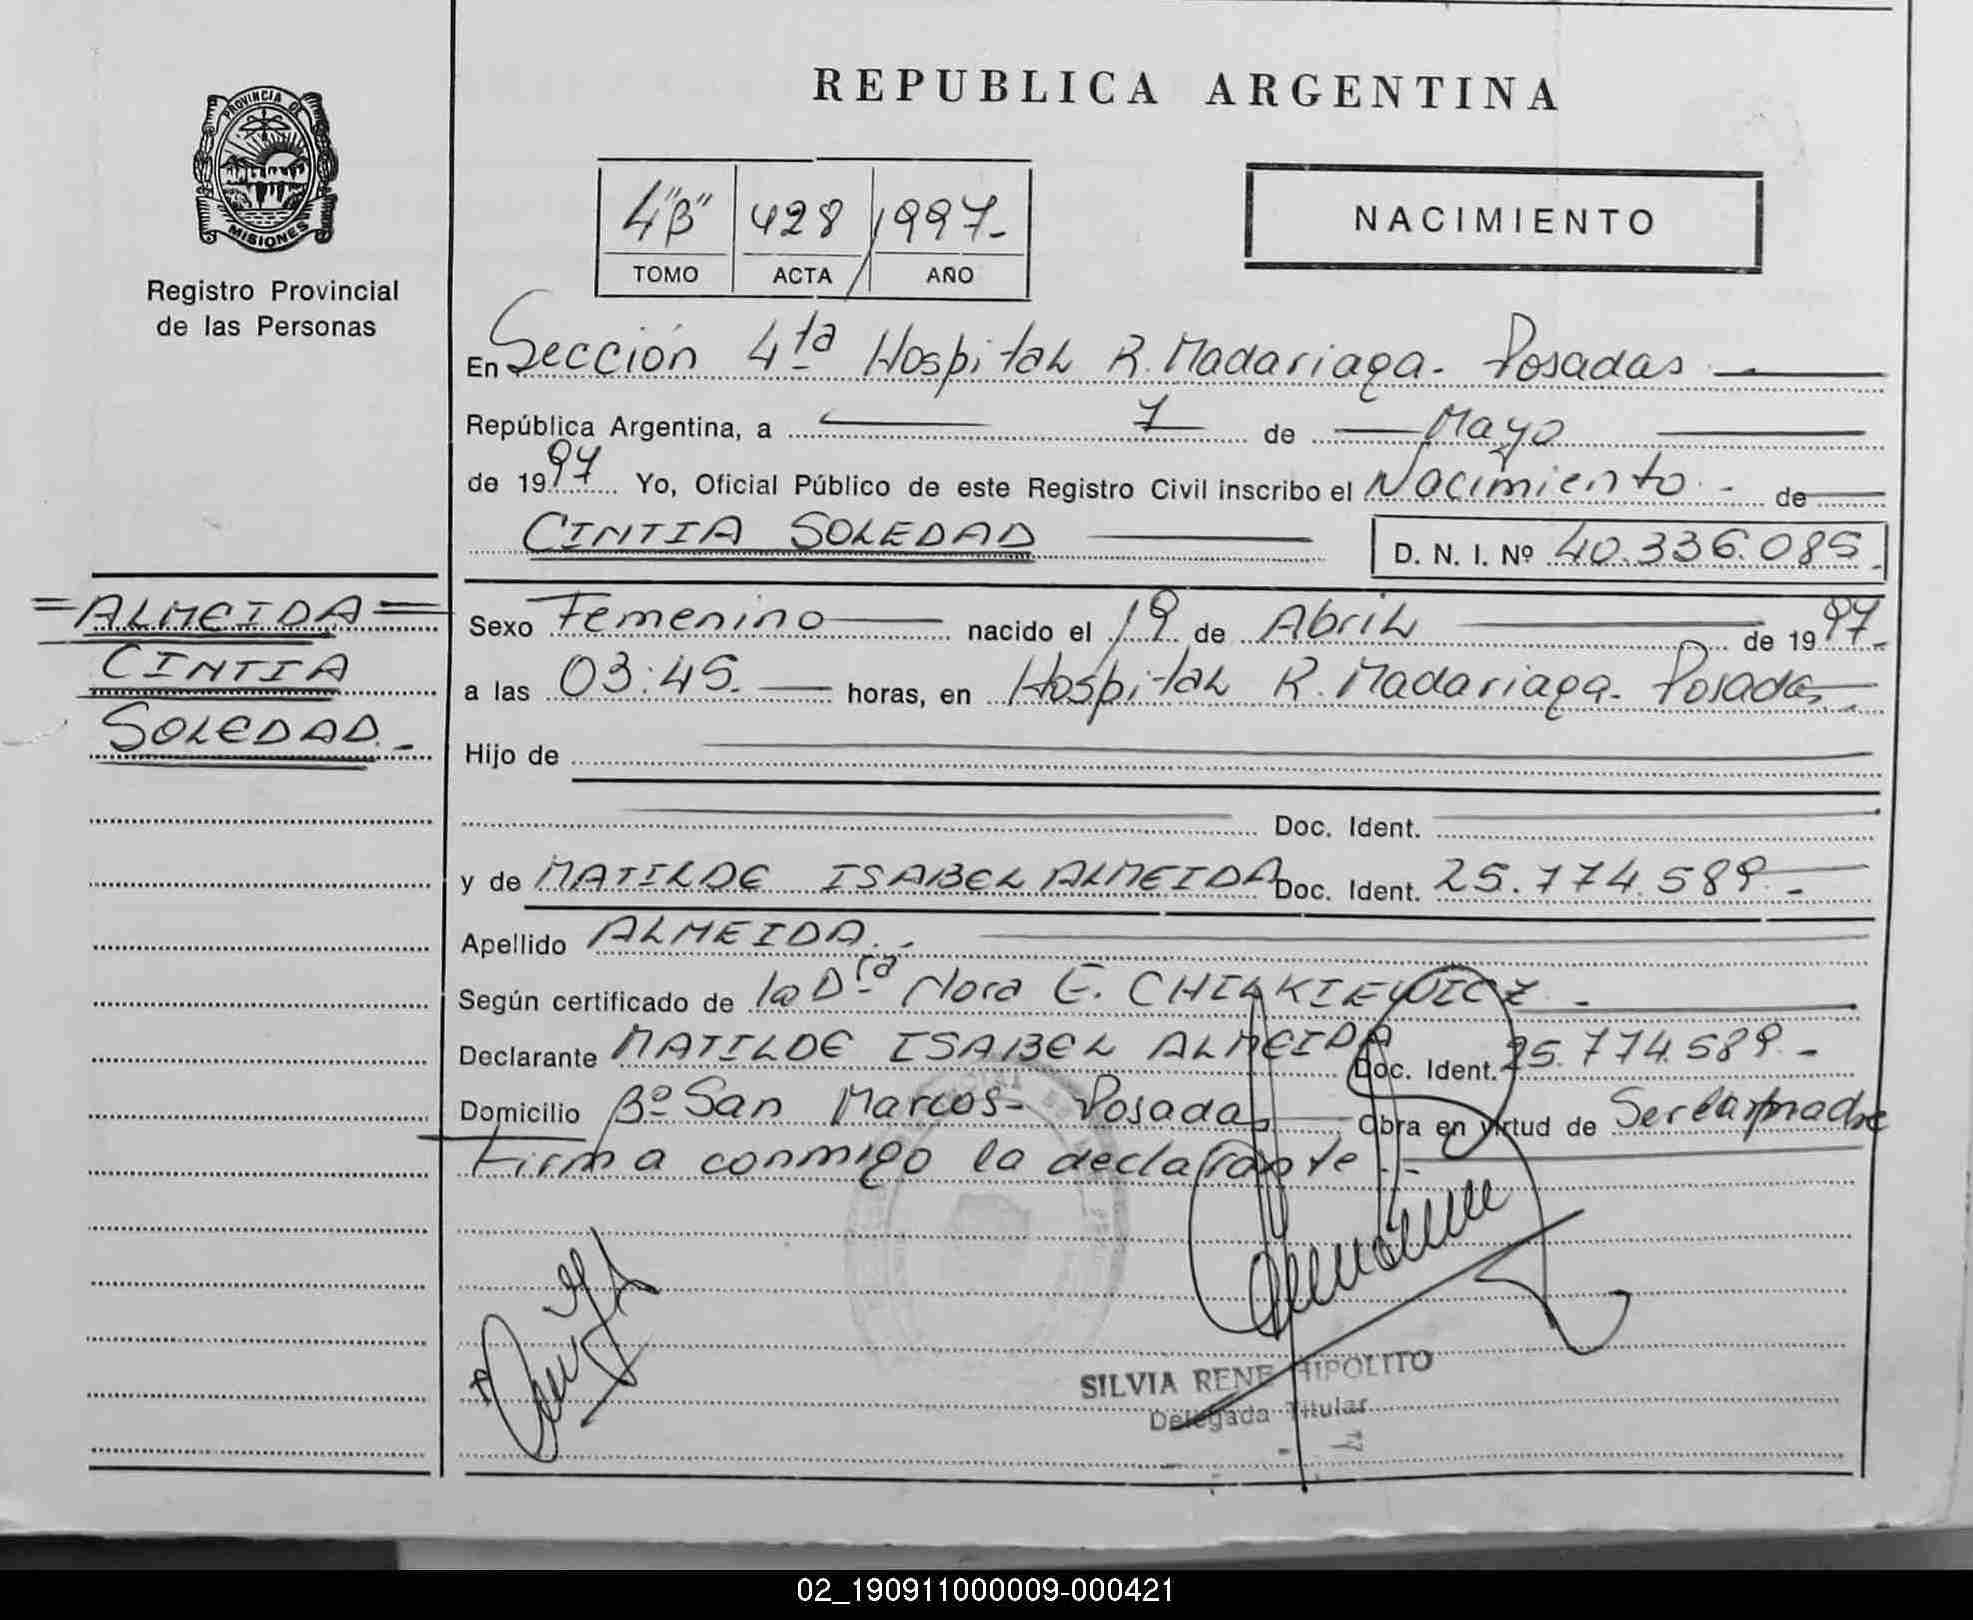 REPUBLICA ARGENTINA
PROVINCIA DE MISIONES
Registro Provincial
de las Personas
4"B" 428 1997-
TOMO ACTA AÑO
NACIMIENTO
En Sección 4ta Hospital R. Madariaga - Posadas
República Argentina, a 7 de Mayo
de 1997 Yo, Oficial Público de este Registro Civil inscribo el Nacimiento - de
CINTIA SOLEDAD D. N. I. Nº 40.336.085
=ALMEIDA=
CINTIA
SOLEDAD.-
Sexo Femenino nacido el 19 de Abril de 1997-
a las 03:45. horas, en Hospital R. Madariaga - Posadas
Hijo de
Doc. Ident.
y de MATILDE ISABEL ALMEIDA Doc. Ident. 25.774.589 -
Apellido ALMEIDA.-
Según certificado de la Dra Nora E. CHILKIEWICZ -
Declarante MATILDE ISABEL ALMEIDA Doc. Ident. 25.774.589 -
Domicilio Bº San Marcos - Posadas Obra en virtud de Ser la madre
Firma conmigo la declarante.-
SILVIA RENE HIPOLITO
Delegada Titular
02_190911000009-000421